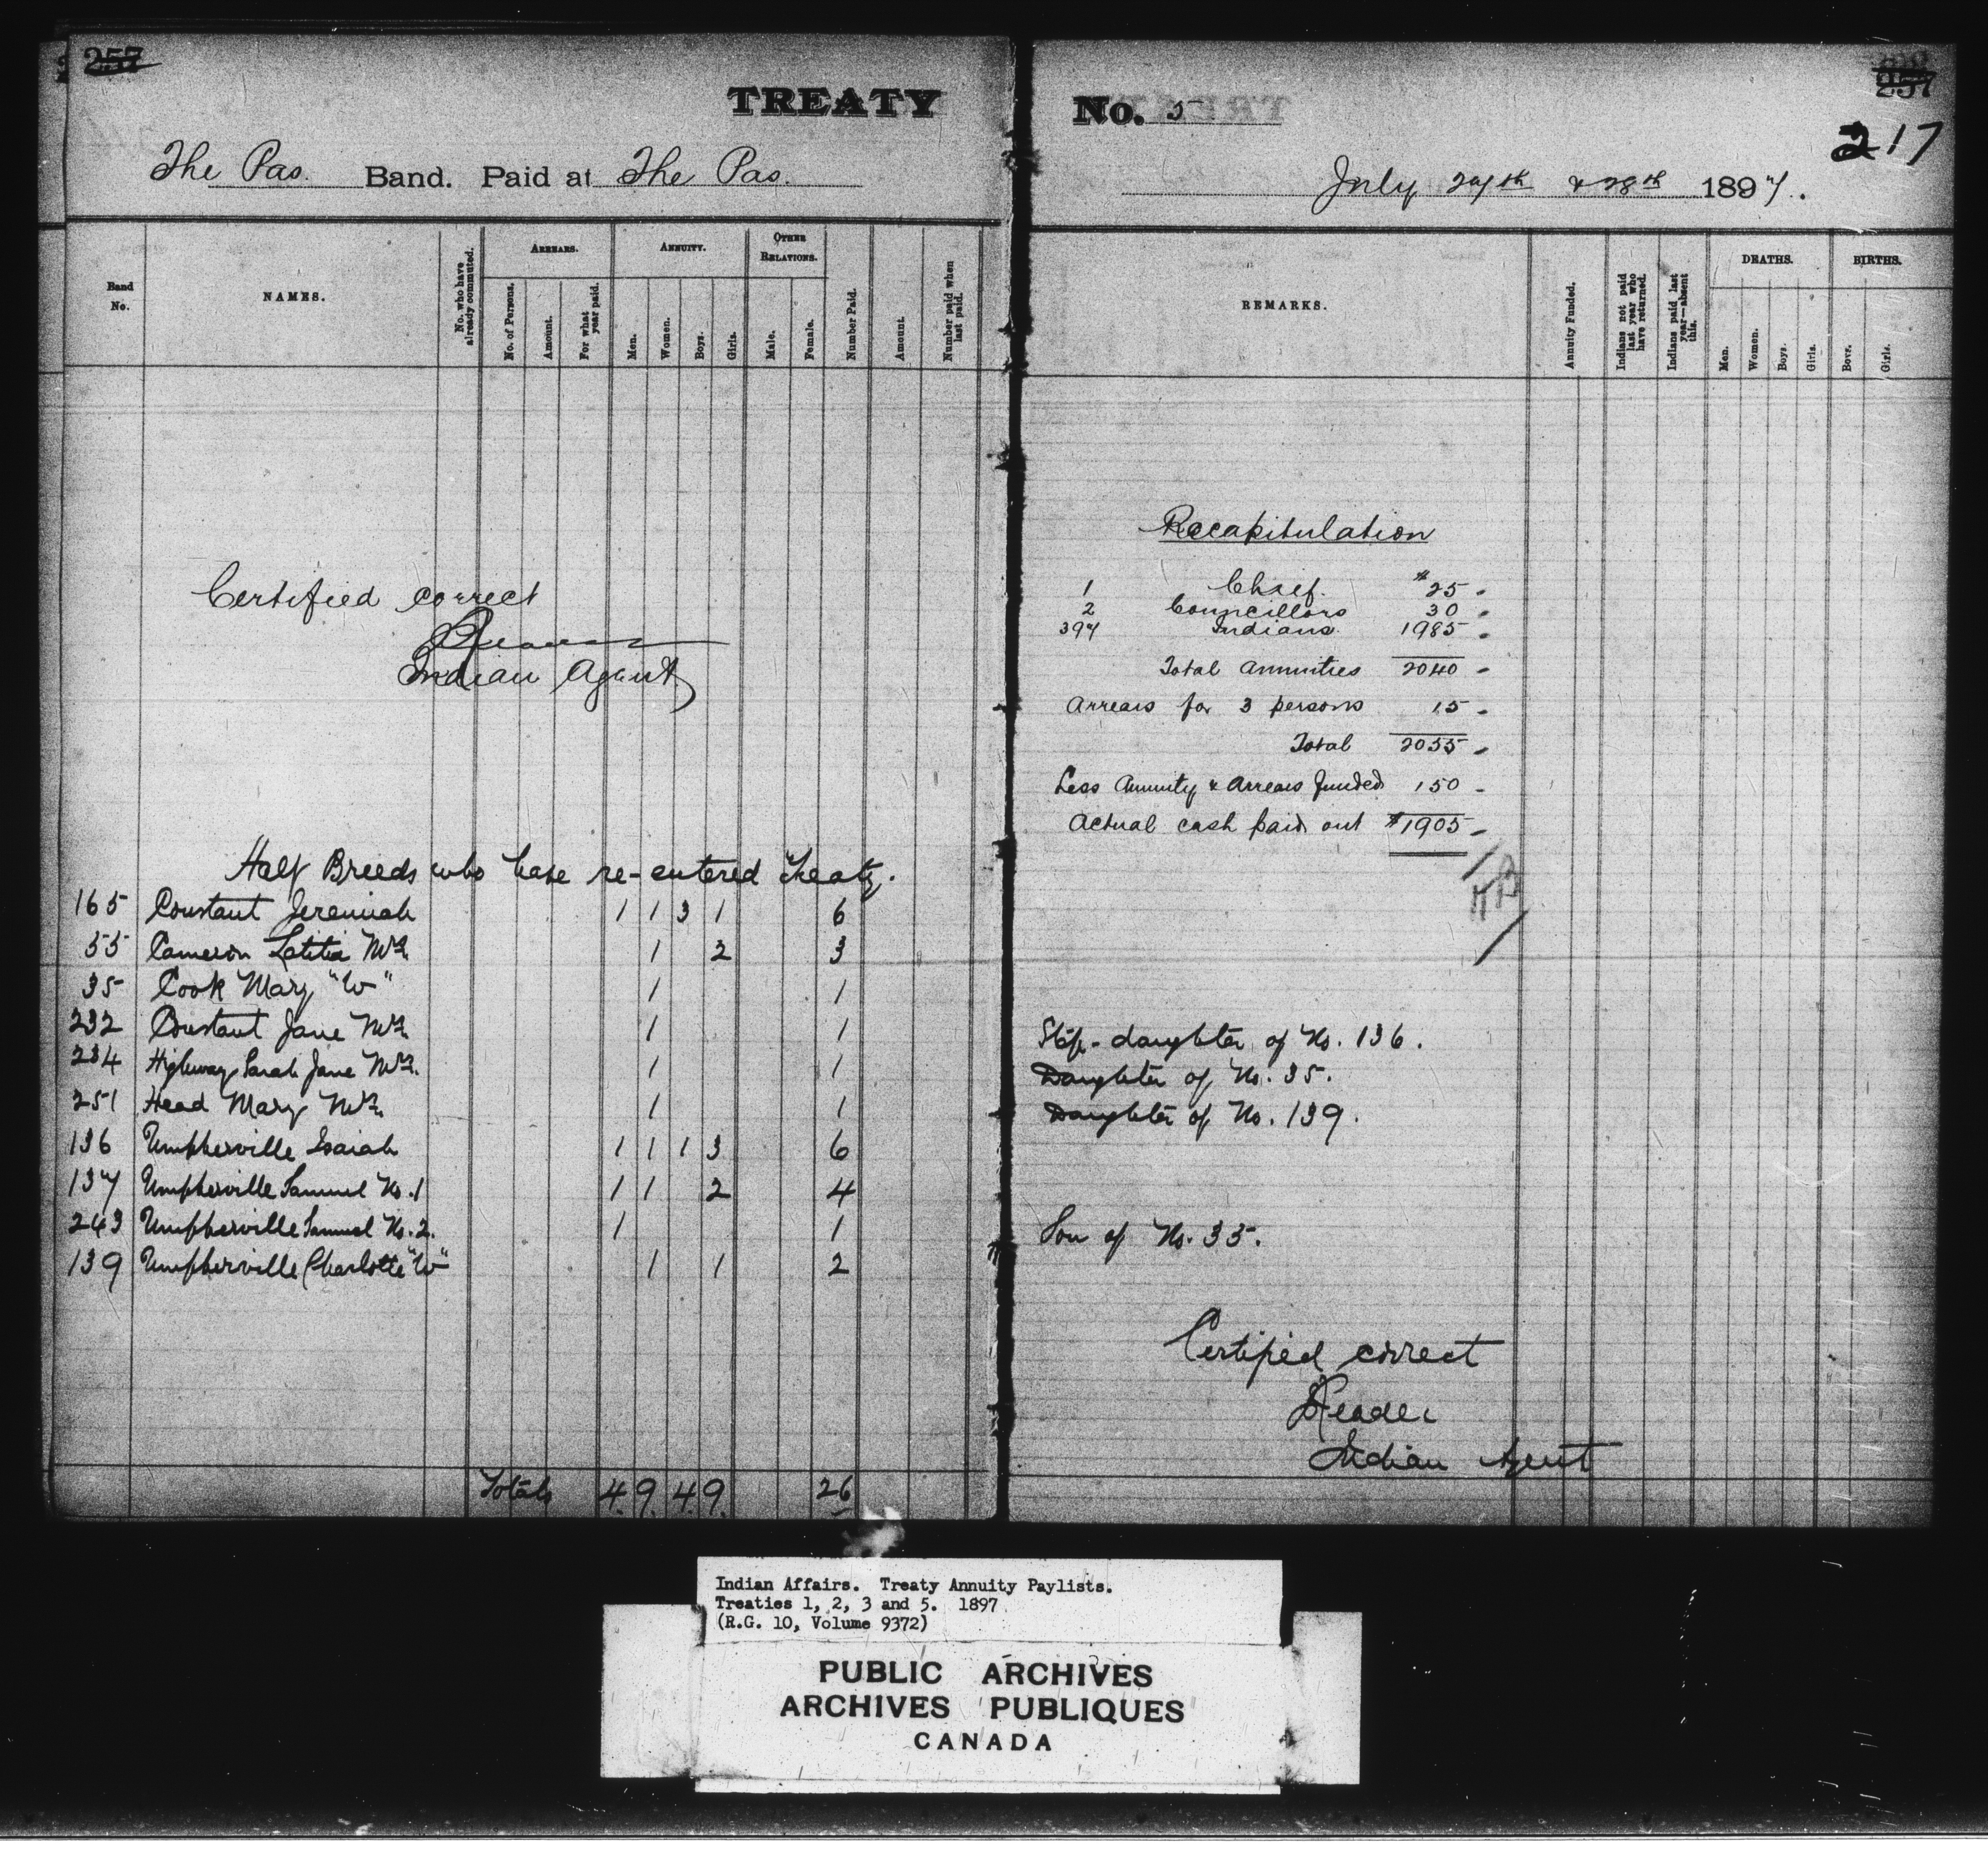 257
TREATY
The Pas. Band. Paid at The Pas.
Band No.
NAMES.
No. who have already commuted.
ARREARS.
No. of Persons.
Amount.
For what year paid.
ANNUITY.
Men.
Women.
Boys.
Girls.
OTHER RELATIONS.
Male.
Female.
Number Paid.
Amount.
Number paid when last paid.
Certified correct
Indian Agent
Half Breeds who have re-entered Treaty.
165 Constant Jeremiah 1 1 3 1 6
55 Cameron Letitia Mrs. 1 2 3
35 Cook Mary "W" 1 1
232 Constant Jane Mrs. 1 1
234 Highway Sarah Jane Mrs. 1 1
251 Head Mary Mrs. 1 1
136 Umpherville Isaiah 1 1 1 3 6
137 Umpherville Samuel No. 1 1 1 2 4
243 Umpherville Samuel No. 2. 1 1
139 Umpherville Charlotte "W" 1 1 2
Totals 4 9 4 9 26
No. 5
257
217
July 27th & 28th 1897.
REMARKS.
Annuity Funded.
Indians not paid last year who have returned.
Indians paid last year—absent this.
DEATHS.
Men.
Women.
Boys.
Girls.
BIRTHS.
Boys.
Girls.
Recapitulation
1 Chief. $25 -
2 Councillors 30 -
397 Indians. 1985 -
Total annuities 2040 -
Arrears for 3 persons 15 -
Total 2055 -
Less Annuity & Arrears funded 150 -
Actual cash paid out $1905 -
Step-daughter of No. 136.
Daughter of No. 35.
Daughter of No. 139.
Son of No. 35.
Certified correct
Reader
Indian Agent
Indian Affairs. Treaty Annuity Paylists.
Treaties 1, 2, 3 and 5. 1897
(R.G. 10, Volume 9372)
PUBLIC ARCHIVES
ARCHIVES PUBLIQUES
CANADA